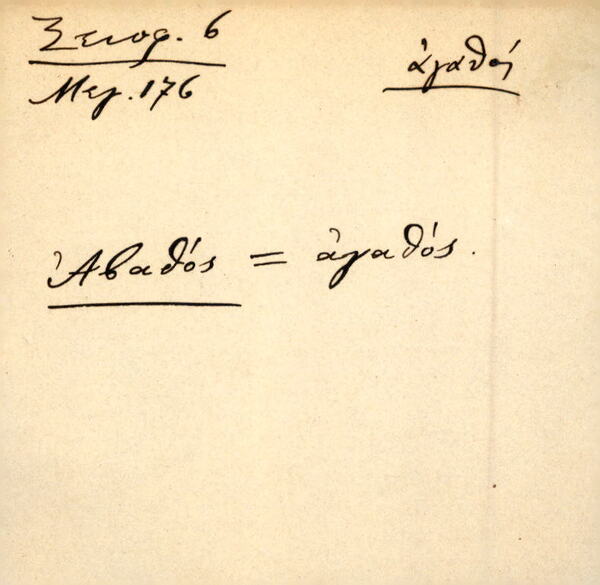 Ξενοφ. 6
ἀγαθός
Μεγ. 176
Ἀβαθός = ἀγαθός.